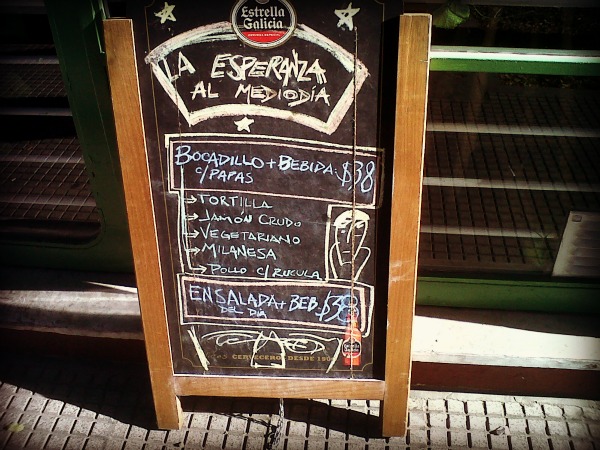 Estrella
Galicia
LA ESPERANZA
AL MEDIODÍA
BOCADILLO + BEBIDA $38
C/PAPAS
TORTILLA
JAMÓN CRUDO
VEGETARIANO
MILANESA
POLLO C/ RUCULA
ENSALADA + BEB. $38
DEL DÍA
CERVECEROS DESDE